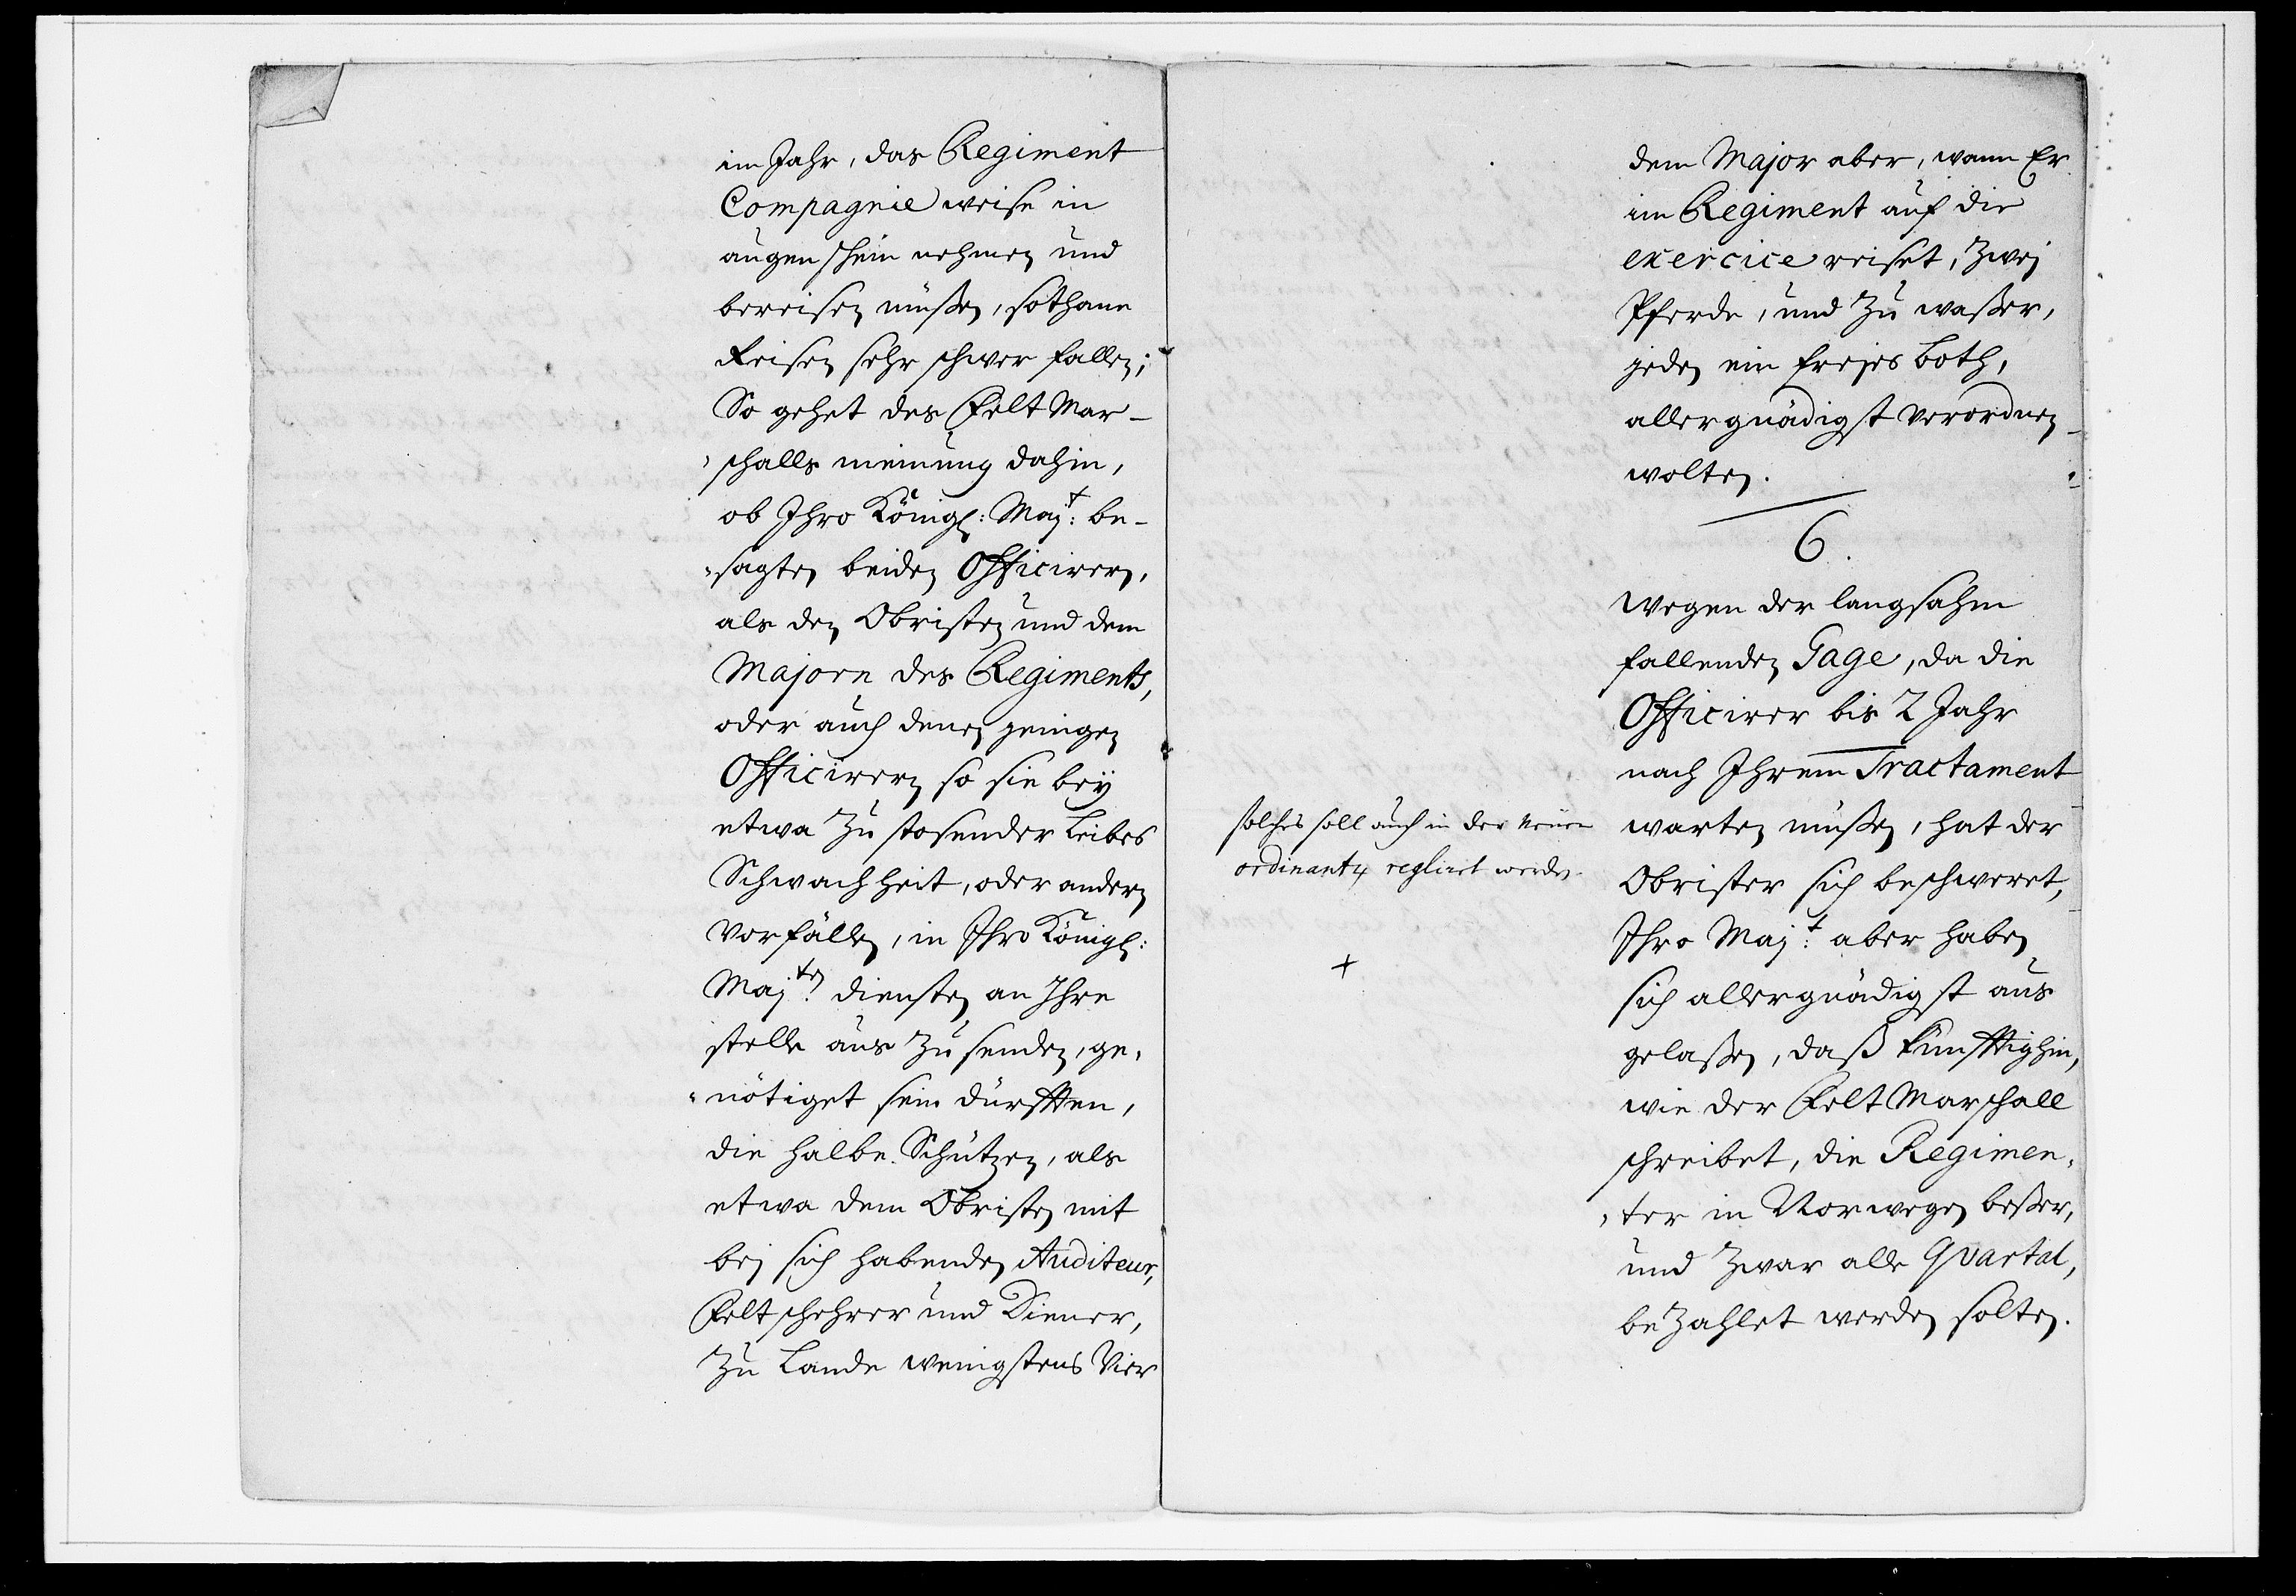 im Jahr, das Regiment
Compagnie weise in
augenschein nehmen und
bereisen müßen, sothane
Reisen sehr schwer fallen;
So gehet des Felt Mar-
schalls meinung dahin,
ob Ihro Königl: Majt: be-
sagten beiden Officirern,
als den Obristen und dem
Majorn des Regiments,
oder auch denen jenigen
Officirern so sie beÿ
etwa zu stosender Leibes
Schwachheit, oder andern
Vorfällen, in Ihro Königl:
Majten: diensten an Ihre
stelle aus zu senden, ge-
nötiget sein dürfften,
die halbe Schützen, als
etwa dem Obristen mit
bei sich habenden Auditeur,
Feltschehrer und Diener,
zu Lande wenigstens Vier
dem Major aber, wann Er
im Regiment auf die
exercice reiset, zwej
Pferde, und zu waßer,
jeden ein frejes Both,
allergnädigst verordnen
wolten.
6.
Wegen der langsahm
fallenden Gage, da die
Officirer bis 2 Jahr
nach Ihrem Tractament
warten müßen, hat der
Obrister sich beschweret,
Ihro Majt: aber haben
sich allergnädigst aus
gelaßen, daß künfftighin,
wie der Felt Marschall
schreibet, die Regimen-
ter in Norwegen beßer,
und zwar alle Quartal,
bezahlet werden solten.
solches soll auch in der neuen
ordinantz regliret werden
+